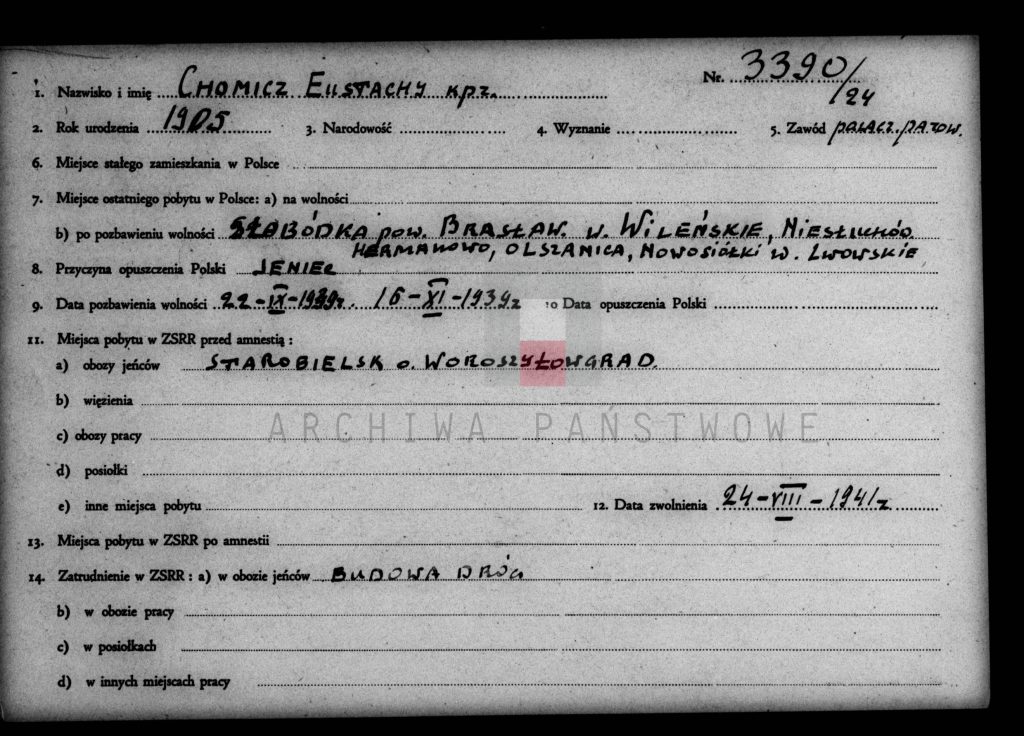 Nr. 3390/24
1. Nazwisko i imię CHOMICZ EUSTACHY kpr.
2. Rok urodzenia 1905 3. Narodowość 4. Wyznanie 5. Zawód PALACZ.PAROW.
6. Miejsce stałego zamieszkania w Polsce
7. Miejsce ostatniego pobytu w Polsce: a) na wolności
b) po pozbawieniu wolności SŁABÓDKA pow. BRASŁAW. w. WILEŃSKIE, NIESŁUCHÓW
HERMANOWO, OLSZANICA, NOWOSIÓŁKI w. LWOWSKIE
8. Przyczyna opuszczenia Polski JENIEC
9. Data pozbawienia wolności 22-IX-1939r. 16-XI-1939r 10 Data opuszczenia Polski
11. Miejsca pobytu w ZSRR przed amnestią:
a) obozy jeńców STAROBIELSK o. WOROSZYŁOWGRAD.
b) więzienia
ARCHIWA PAŃSTWOWE
c) obozy pracy
d) posiołki
e) inne miejsca pobytu 12. Data zwolnienia 24-VIII-1941r
13. Miejsca pobytu w ZSRR po amnestii
14. Zatrudnienie w ZSRR: a) w obozie jeńców BUDOWA DRÓG
b) w obozie pracy
c) w posiołkach
d) w innych miejscach pracy